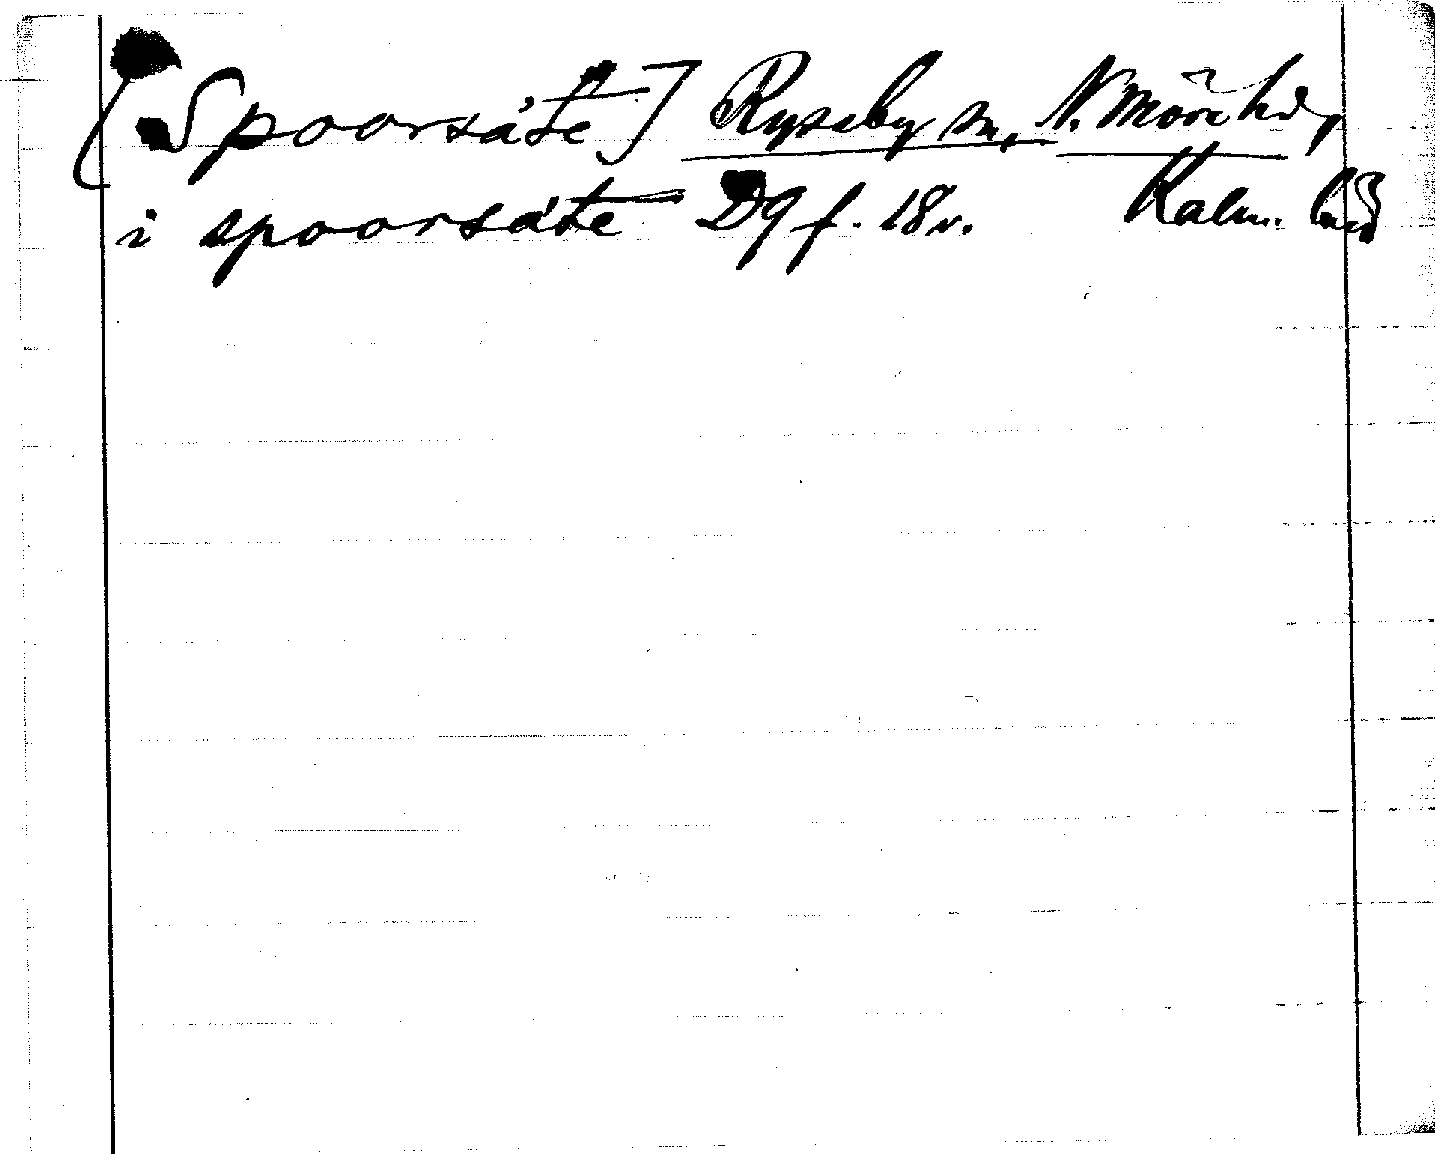 [Spoorsäte] Ryssby sn, N. Möre hd,
i spoorsäte D9 f. 18v. Kalm. län